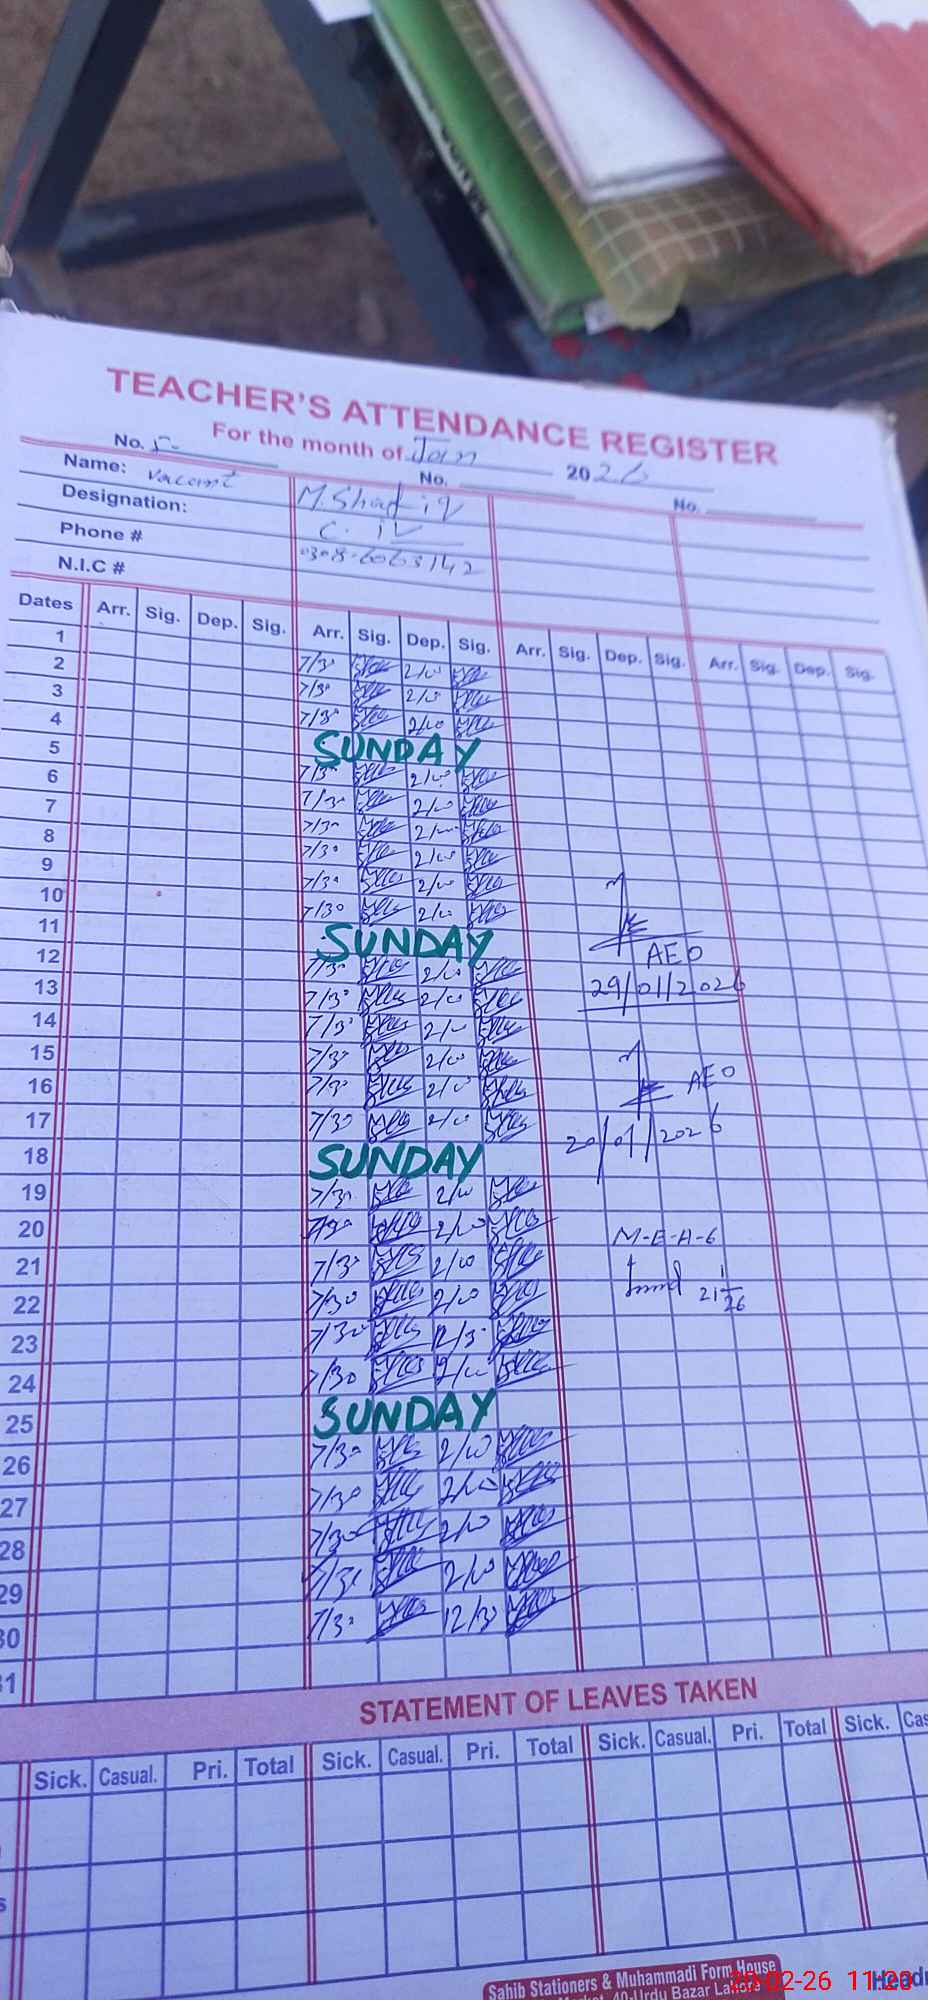 TEACHER'S ATTENDANCE REGISTER
For the month of Jan 2026
No. 5- No. No.
Name: Vacant M. Shafiq
Designation: C. IV
Phone # 0308-6063142
N.I.C #
Dates Arr. Sig. Dep. Sig. Arr. Sig. Dep. Sig. Arr. Sig. Dep. Sig. Arr. Sig. Dep. Sig.
1 7/30 2/00
2 7/30 2/00
3 7/30 2/00
4 SUNDAY
5 7/30 2/00
6 7/30 2/00
7 7/30 2/00
8 7/30 2/00
9 7/30 2/00
10 7/30 2/00
11 SUNDAY
AEO
12 7/30 2/00
29/01/2026
13 7/30 2/00
14 7/30 2/00
15 7/30 2/00
16 7/30 2/00
AEO
17 7/30 2/00
20/01/2026
18 SUNDAY
19 7/30 2/00
20 7/30 2/00
M-E-A-6
21 7/30 2/00
22 7/30 2/00
21 1/26
23 7/30 12/30
24 7/30 2/00
25 SUNDAY
26 7/30 2/00
27 7/30 2/00
28 7/30 2/00
29 7/30 2/00
30 7/30 12/30
31
STATEMENT OF LEAVES TAKEN
Sick. Casual. Pri. Total Sick. Casual. Pri. Total Sick. Casual. Pri. Total Sick. Cas
Sahib Stationers & Muhammadi Form House
Market, 40-Urdu Bazar Lahore
20-02-26 11:20